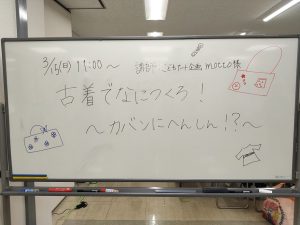 3/15(日) 11:00～ 講師: こどもアート企画 mocco様
古着でなにつくろ!
～カバンにへんしん!?～